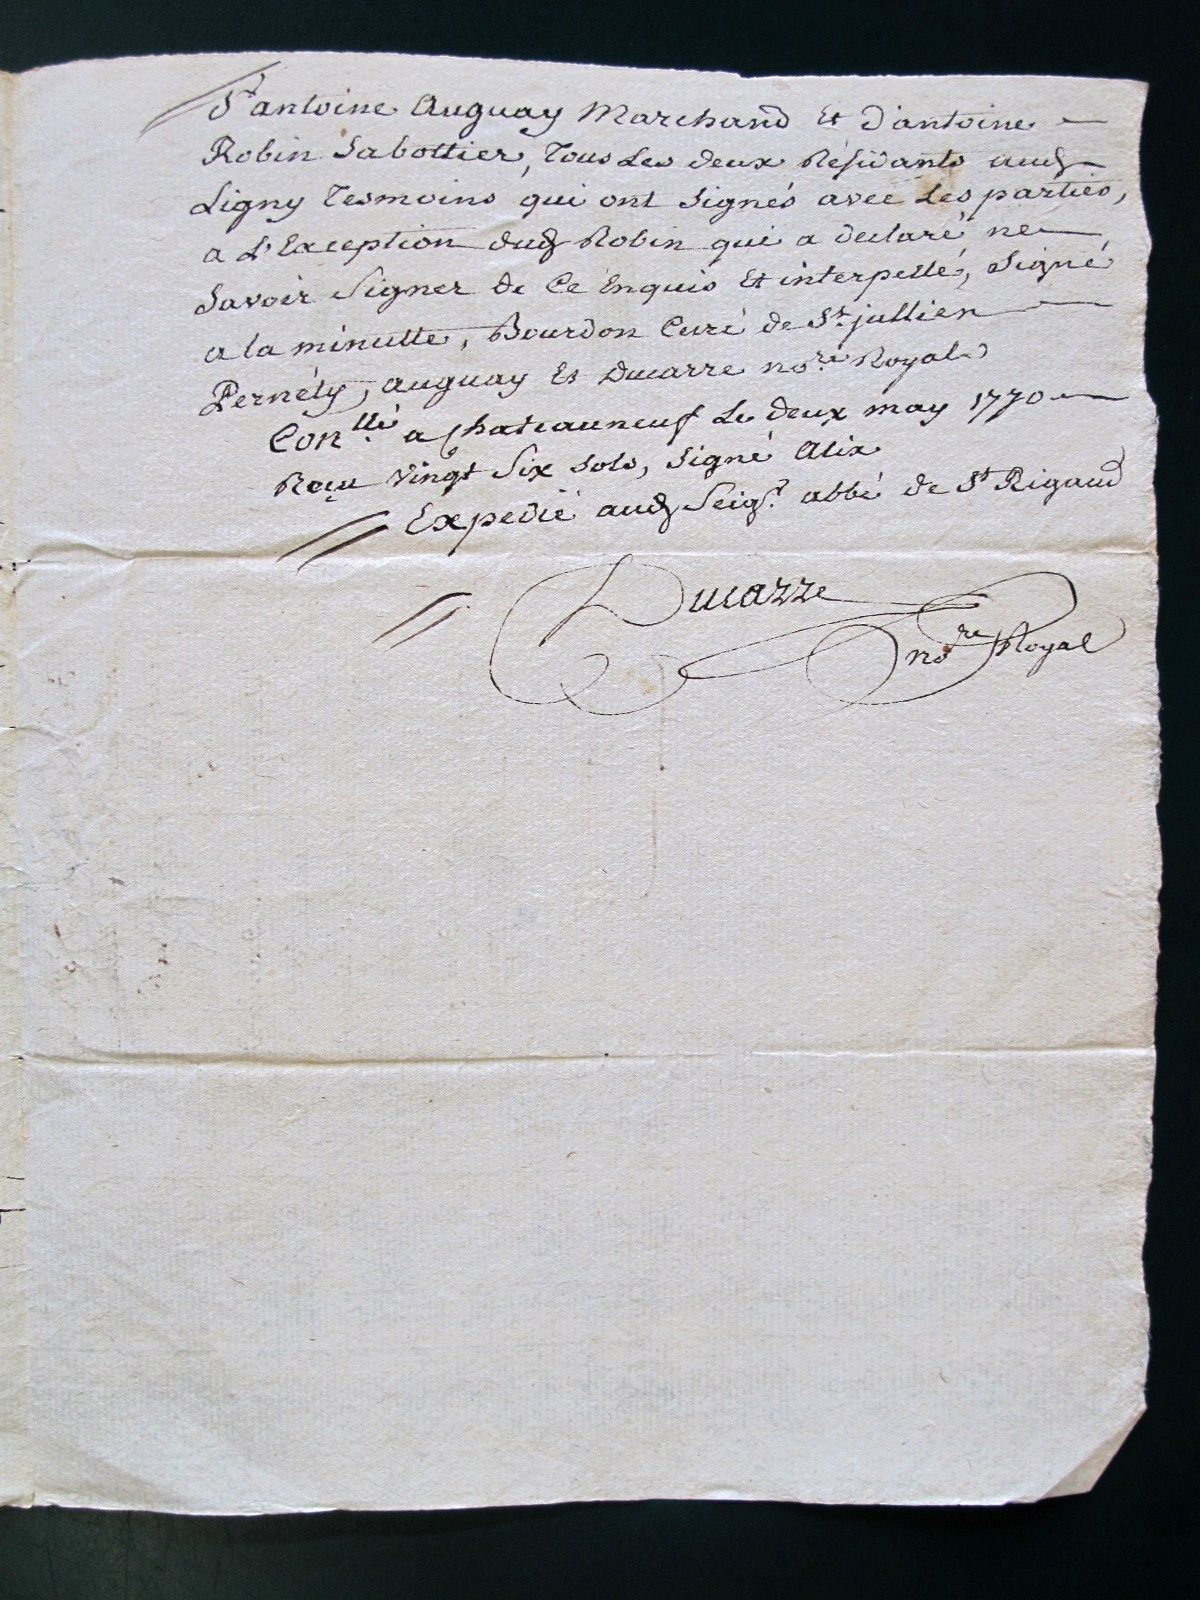 Sr antoine Auguay Marchand Et d'antoine
Robin Sabottier, Tous Les deux Résidants aud
Ligny Tesmoins qui ont signés avec Les parties,
a L'Exception dud Robin qui a declaré ne
Savoir Signer de Ce Enquis Et interpellé, Signé
a la minutte, Bourdon Curé de St jullien
Pernéty, auguay Et Ducarre nore Royal
Conllé a Chateauneuf Le deux may 1770
Reçu vingt Six sols, Signé Alix
Expedié aud Seigr abbé de St Rigaud
Ducarre
nore Royal